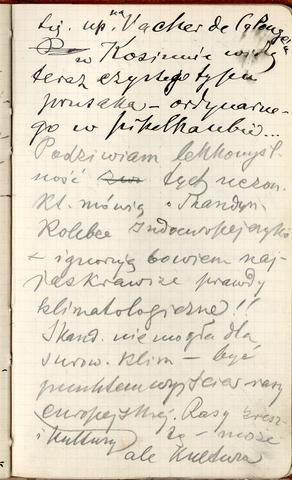 tzg. np. na Vacher de Lapouge'a
w Kozimie widzę
teraz czystego typu
prusaka – ordynarne-
go w pikelhaubie...
Podziwiam lekkomyśl-
ność tych uczon.
kt. mówią o Skandyn.
Kolebce Indoeuropejczyków
ignorują bowiem naj-
jaskrawsze prawdy
klimatologiczne!!
Skand. nie mogła dla
surow. klim – być
punktem wyjścia rasy
europejskiej. Rasy zresz-
i kultury tą – może
ale kultura